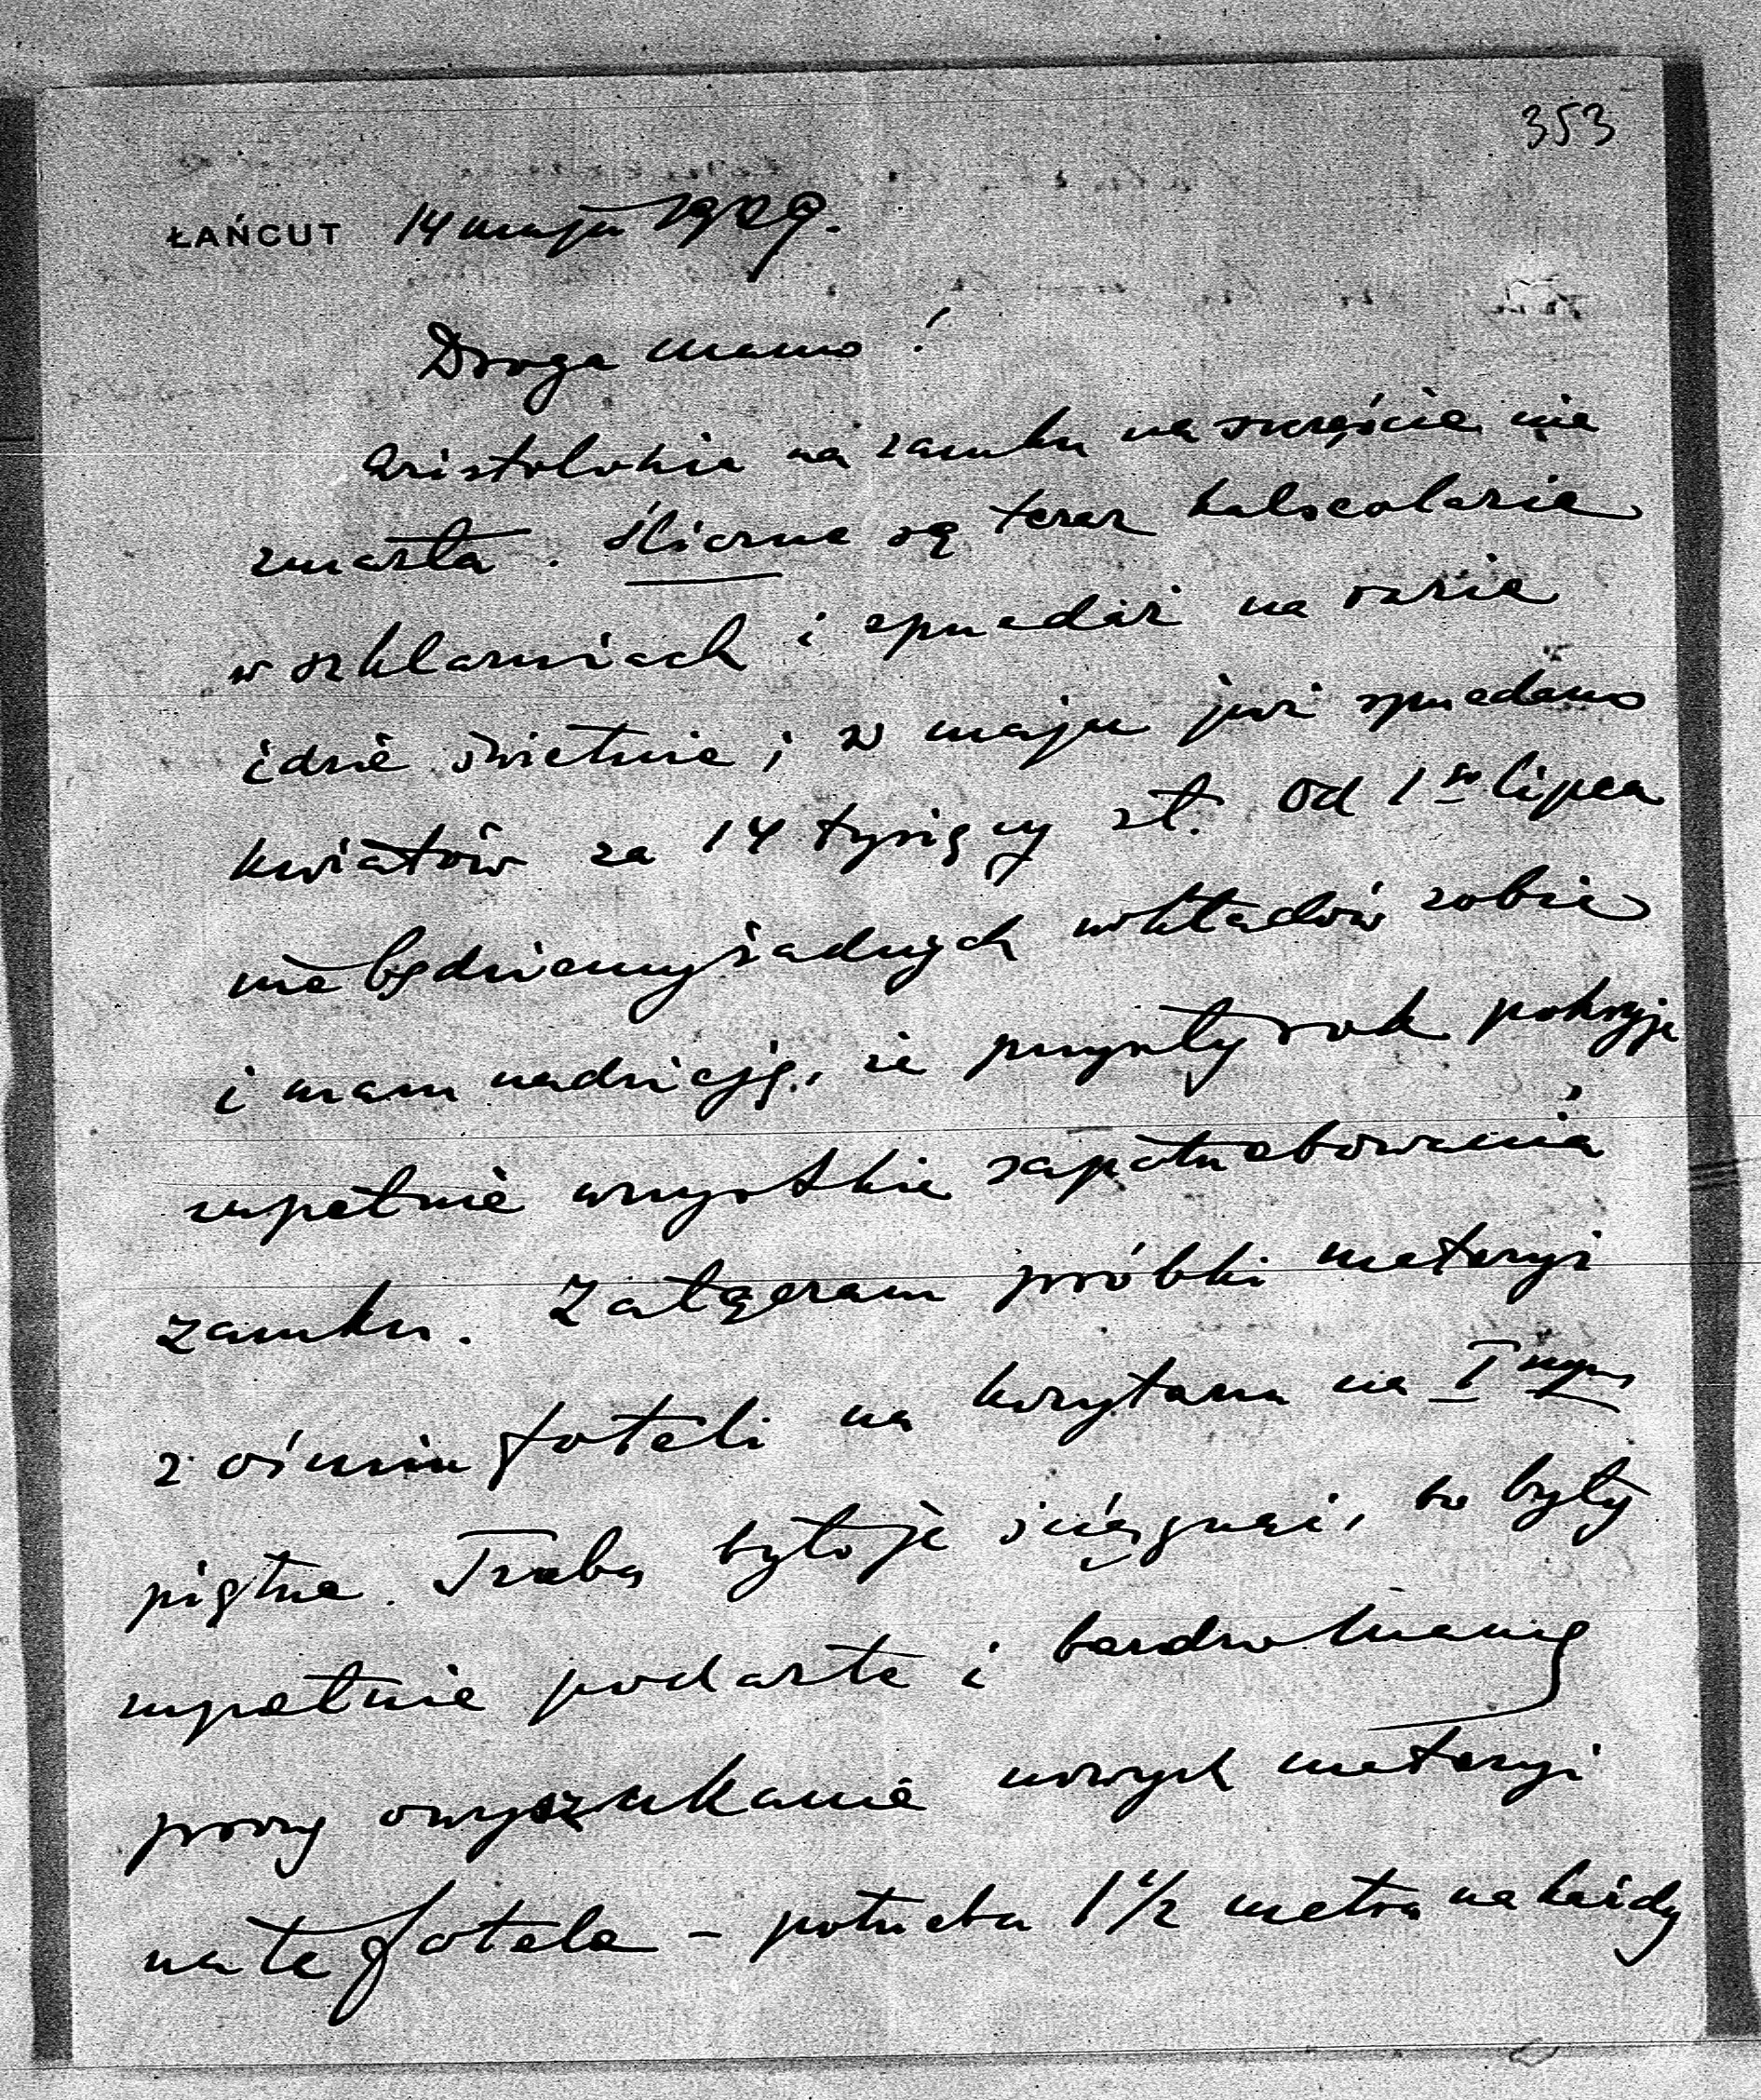 353
ŁAŃCUT 14 maja 1929.
Droga mamo!
Aristolokia na zamku na szczęście nie
zmarła. Śliczne są teraz kalseolarie
w szklarniach i sprzedaż na razie
idzie świetnie; w maju już sprzedano
kwiatów za 14 tysięcy zł. Od 1go lipca
nie będziemy żadnych wkładów robić
i mam nadzieję, że przyszły rok pokryje
zupełnie wszystkie zapotrzebowania
zamku. Załączam próbki materyi
z ośmiu foteli na korytarzu na I
piętrze. Trzeba było je ściągnąć, bo były
zupełnie podarte i bardzo
proszę o wyszukanie nowych materyi
na te fotele – potrzeba 1 1/2 metra na każdy